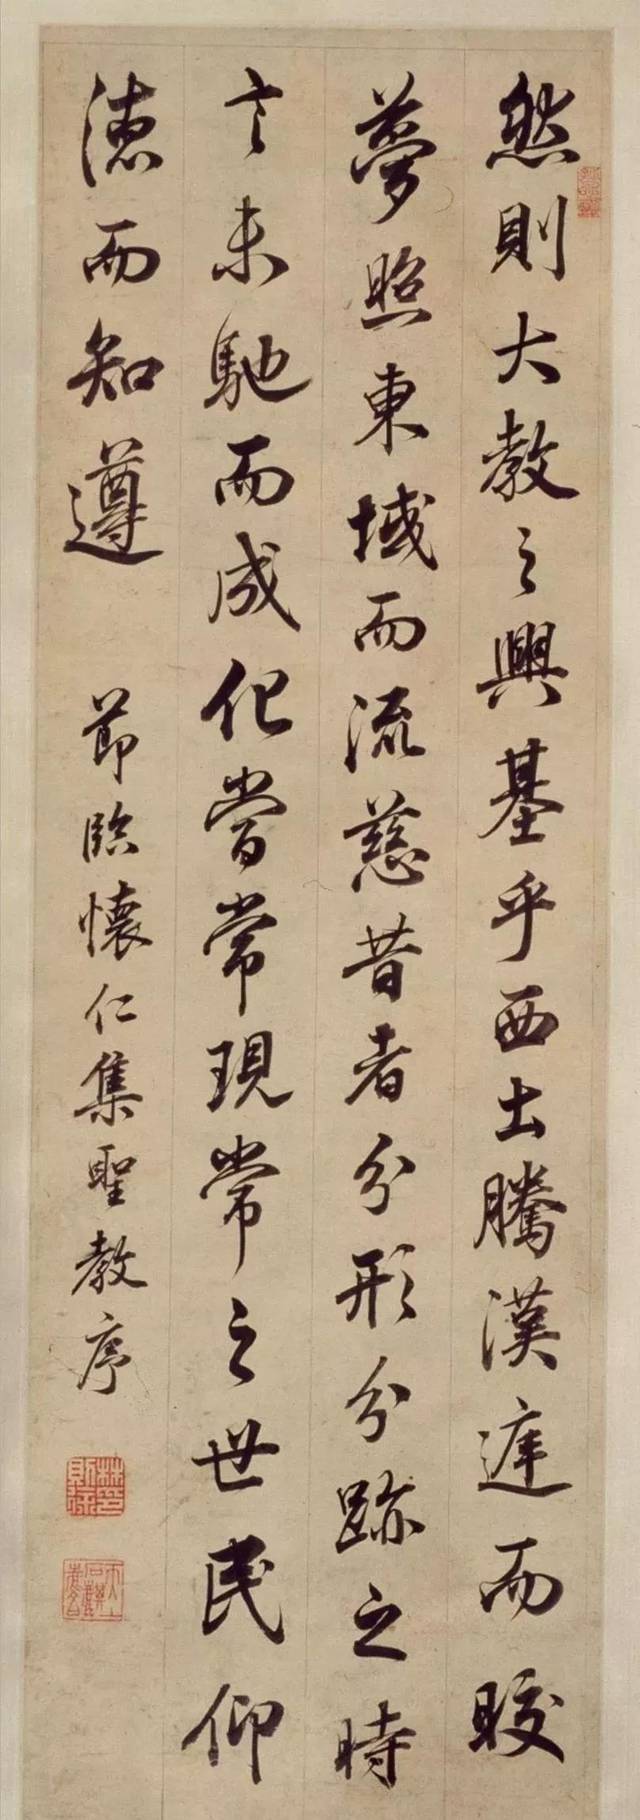 然則大教之興基乎西土騰漢逴而晈
夢照東域而流慈昔者分形分跡之時
言未馳而成化當常現常之世民仰
德而知遵
節臨懷仁集聖教序
林則徐印